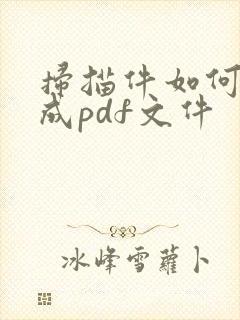 掃描件如何
成pdf文件
冰峰雪蘿卜